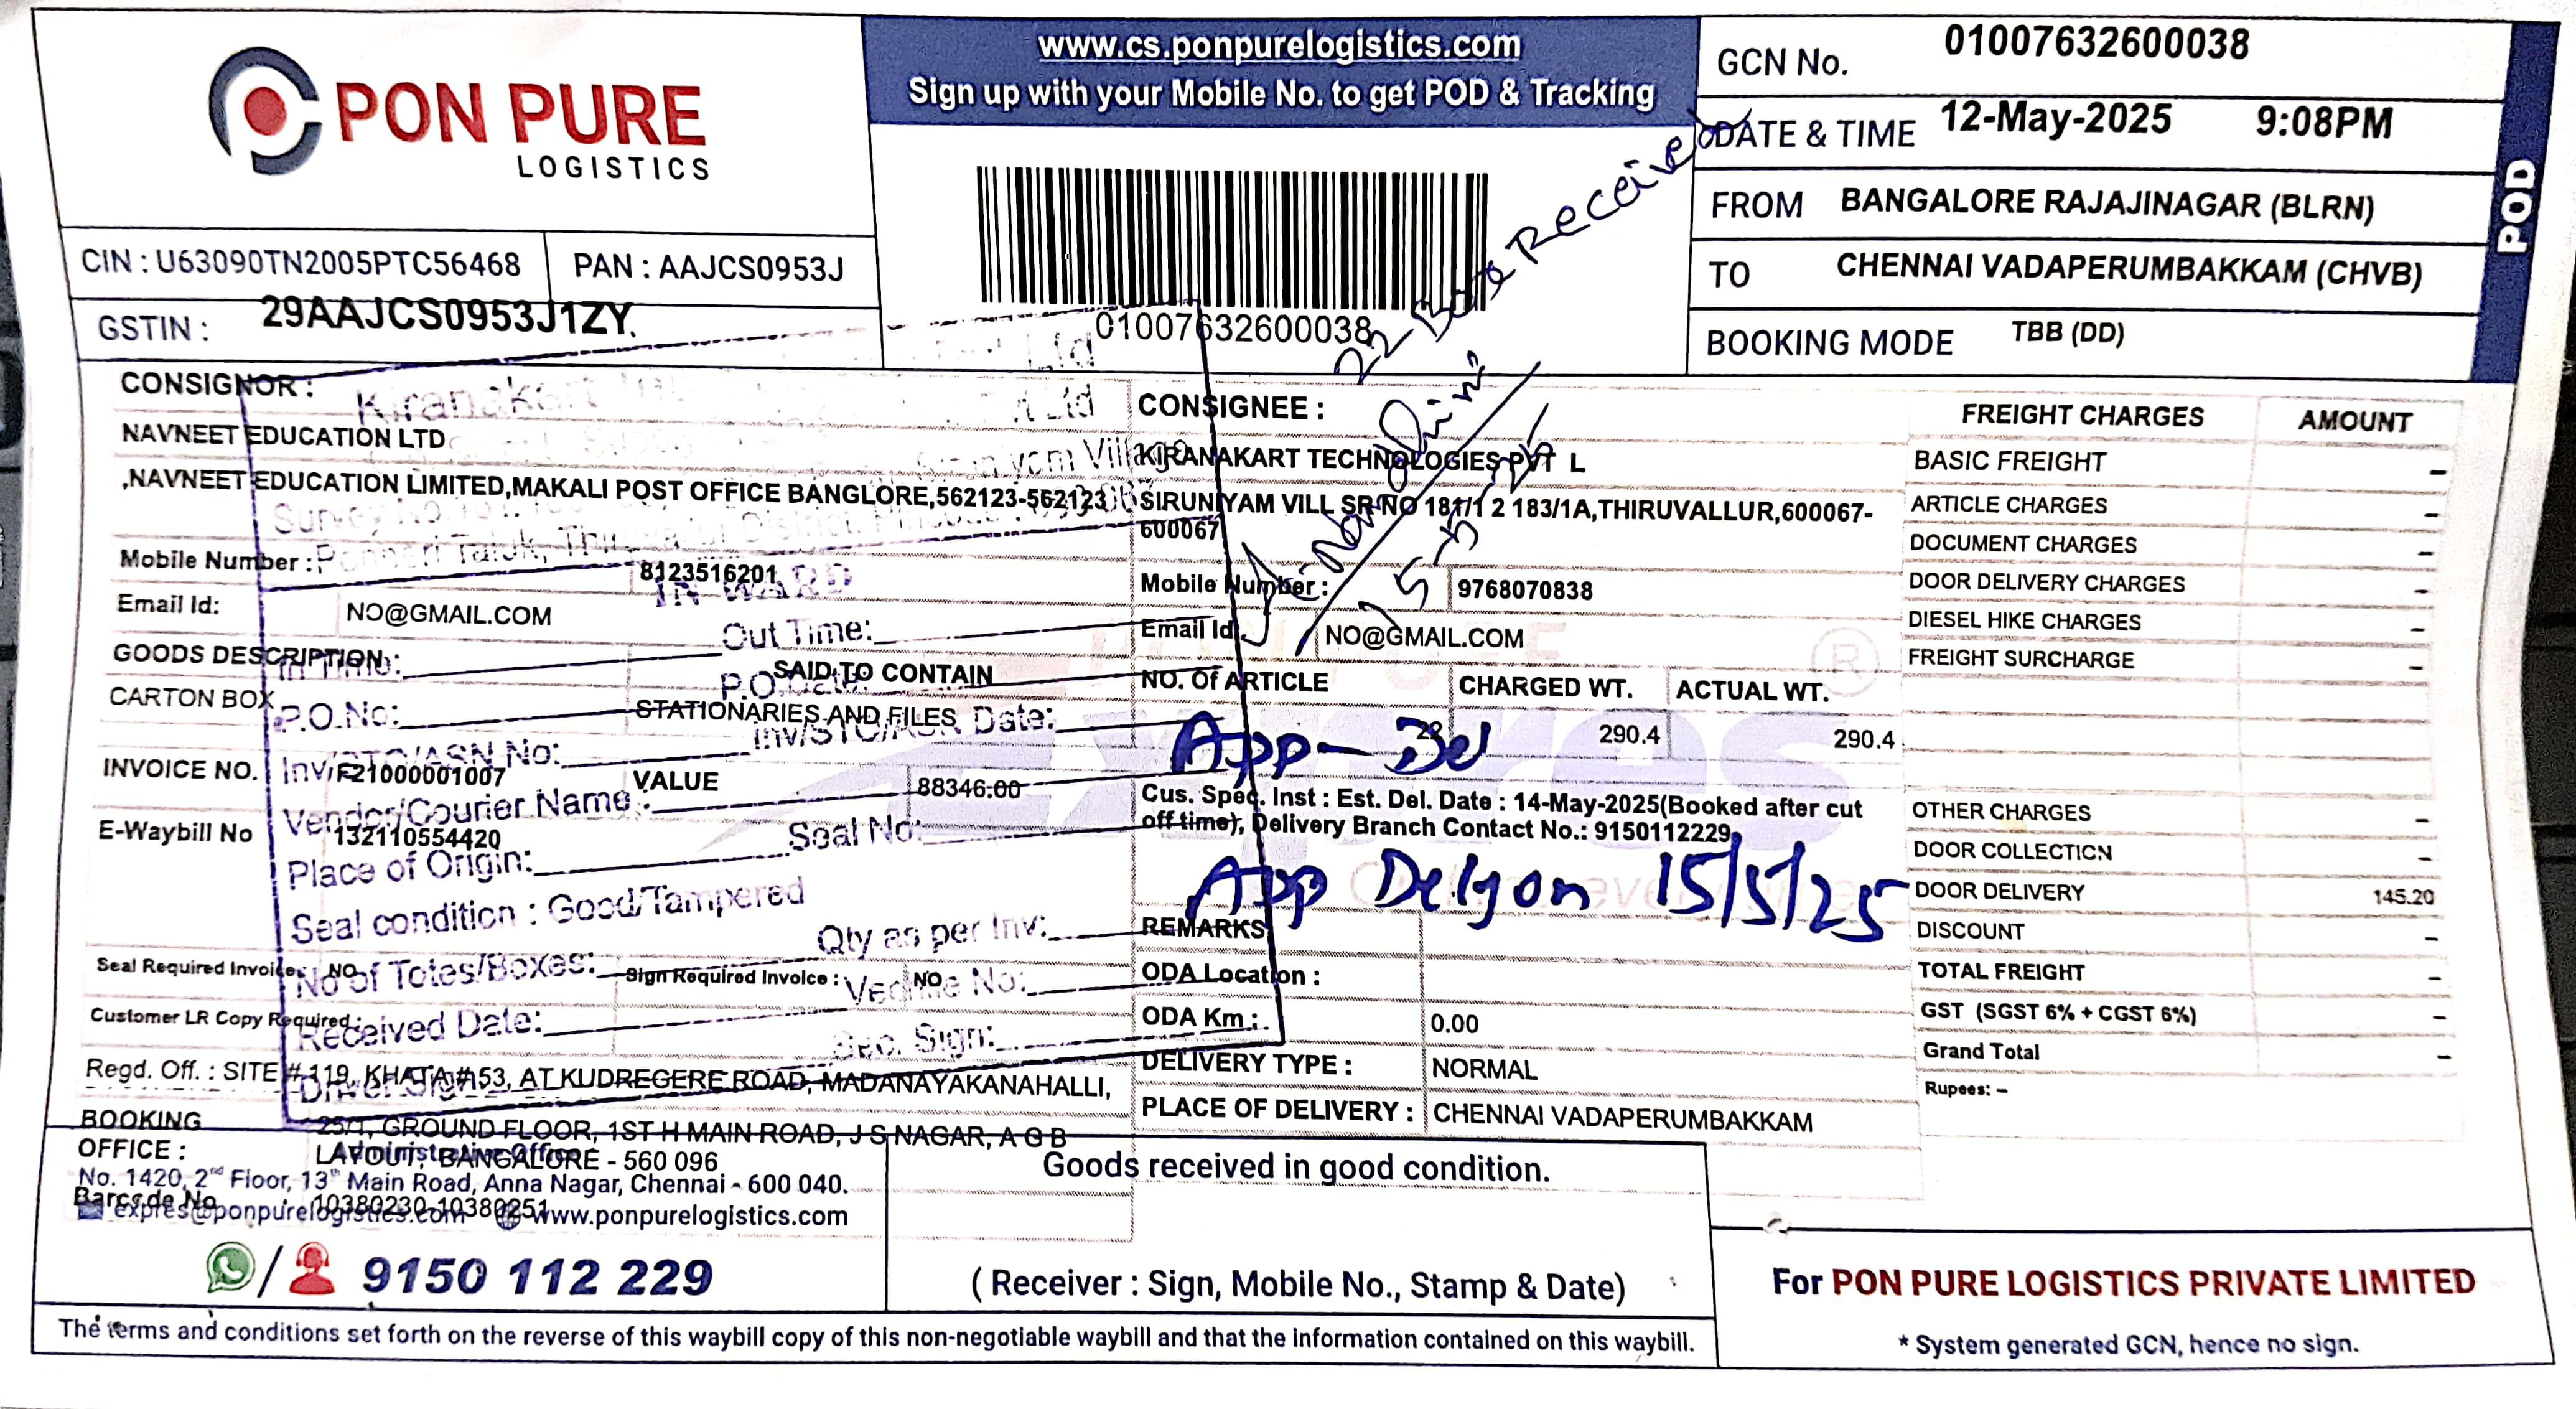 PON PURE
LOGISTICS
www.cs.ponpurelogistics.com
Sign up with your Mobile No. to get POD & Tracking
GCN No. 01007632600038
DATE & TIME 12-May-2025 9:08PM
FROM BANGALORE RAJAJINAGAR (BLRN)
TO CHENNAI VADAPERUMBAKKAM (CHVB)
BOOKING MODE TBB (DD)
POD
CIN : U63090TN2005PTC56468 PAN : AAJCS0953J
GSTIN : 29AAJCS0953J1ZY
01007632600038
22- Box Received
15-5-25
CONSIGNOR :
NAVNEET EDUCATION LTD
,NAVNEET EDUCATION LIMITED,MAKALI POST OFFICE BANGLORE,562123-562123
Mobile Number : 8123516201
Email Id: NO@GMAIL.COM
GOODS DESCRIPTION : SAID TO CONTAIN
CARTON BOX STATIONARIES AND FILES
INVOICE NO. F21000001007 VALUE 88346.00
E-Waybill No 132110554420
Seal Required Invoice: NO Sign Required Invoice : NO
Customer LR Copy Required :
Regd. Off. : SITE # 119, KHATA # 53, AT KUDREGERE ROAD, MADANAYAKANAHALLI,
BOOKING OFFICE : 25/1, GROUND FLOOR, 1ST H MAIN ROAD, J S NAGAR, A G B
LAYOUT, BANGALORE - 560 096
Administrative Office:
No. 1420, 2nd Floor, 13th Main Road, Anna Nagar, Chennai - 600 040.
Barcode No : 10380230-10380251
expres@ponpurelogistics.com www.ponpurelogistics.com
9150 112 229
Kiranakart
Pvt Ltd
Village
Survey No
Ponneri Taluk,
IN WARD
In Time: Out Time:
P.O.No: P.O.Date:
Inv/STO/ASN No: Inv/STO/ASN Date:
Vendor/Courier Name:
Place of Origin: Seal No:
Seal condition : Good/Tampered
Qty as per Inv:
No of Totes/Boxes: Vechile No:
Received Date: Sec. Sign:
Driver Sign
CONSIGNEE :
KIRANAKART TECHNOLOGIES PVT L
SIRUNIYAM VILL SR NO 181/1 2 183/1A,THIRUVALLUR,600067-
600067
Mobile Number : 9768070838
Email Id NO@GMAIL.COM
NO. Of ARTICLE CHARGED WT. ACTUAL WT.
22 290.4 290.4
App - Del
Cus. Spec. Inst : Est. Del. Date : 14-May-2025(Booked after cut
off time), Delivery Branch Contact No.: 9150112229,
App Dely on 15/5/25
REMARKS
ODA Location :
ODA Km : 0.00
DELIVERY TYPE : NORMAL
PLACE OF DELIVERY : CHENNAI VADAPERUMBAKKAM
FREIGHT CHARGES AMOUNT
BASIC FREIGHT –
ARTICLE CHARGES –
DOCUMENT CHARGES –
DOOR DELIVERY CHARGES –
DIESEL HIKE CHARGES –
FREIGHT SURCHARGE –
OTHER CHARGES –
DOOR COLLECTION –
DOOR DELIVERY 145.20
DISCOUNT –
TOTAL FREIGHT –
GST (SGST 6% + CGST 6%) –
Grand Total –
Rupees: –
Goods received in good condition.
( Receiver : Sign, Mobile No., Stamp & Date)
For PON PURE LOGISTICS PRIVATE LIMITED
* System generated GCN, hence no sign.
The terms and conditions set forth on the reverse of this waybill copy of this non-negotiable waybill and that the information contained on this waybill.